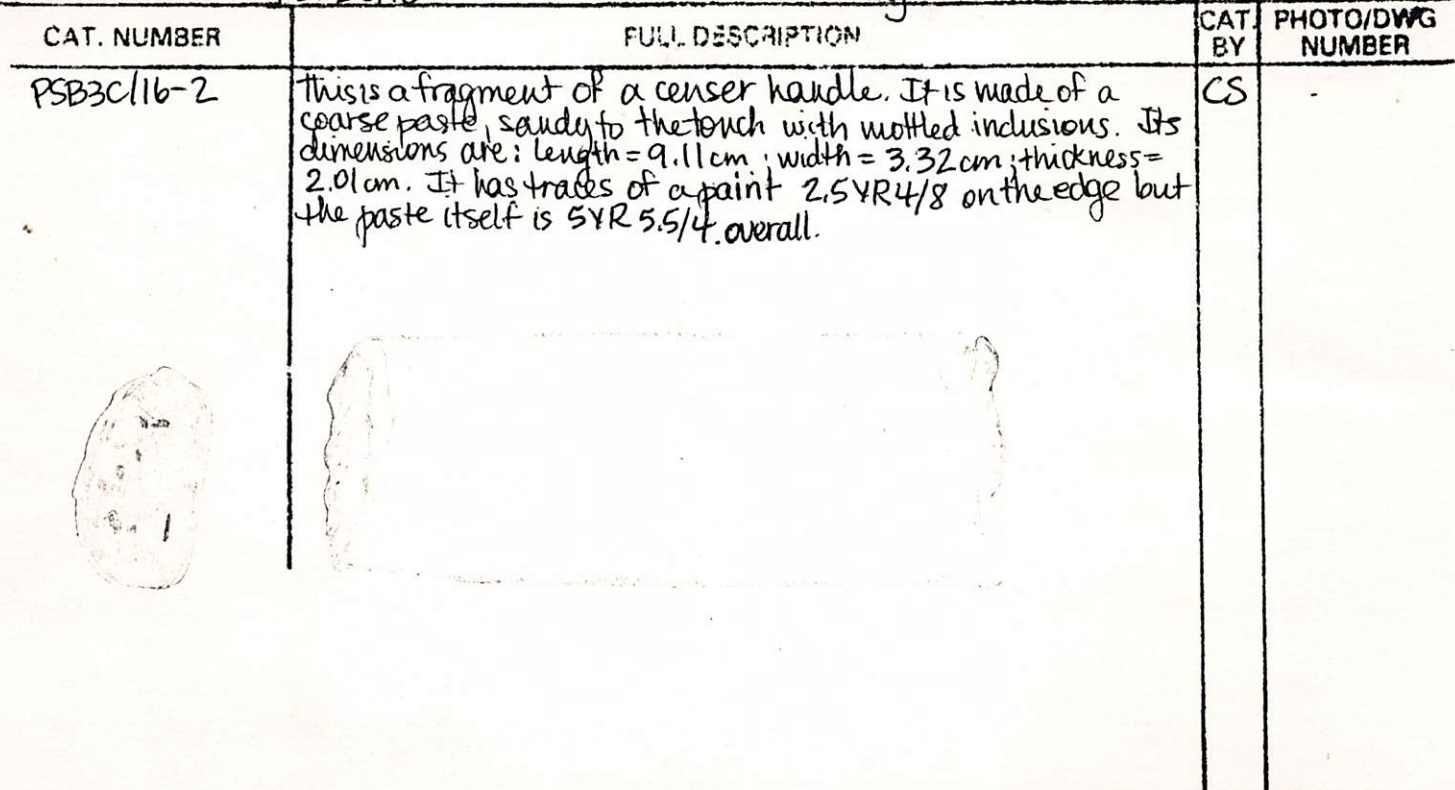 CAT. NUMBER
FULL DESCRIPTION
CAT. BY
PHOTO/DWG NUMBER
PSB3C/16-2
This is a fragment of a censer handle. It is made of a
coarse paste, sandy to the touch with mottled inclusions. Its
dimensions are: length = 9.11 cm; width = 3.32 cm; thickness =
2.01 cm. It has traces of a paint 2.5 YR 4/8 on the edge but
the paste itself is 5YR 5.5/4. overall.
CS
-